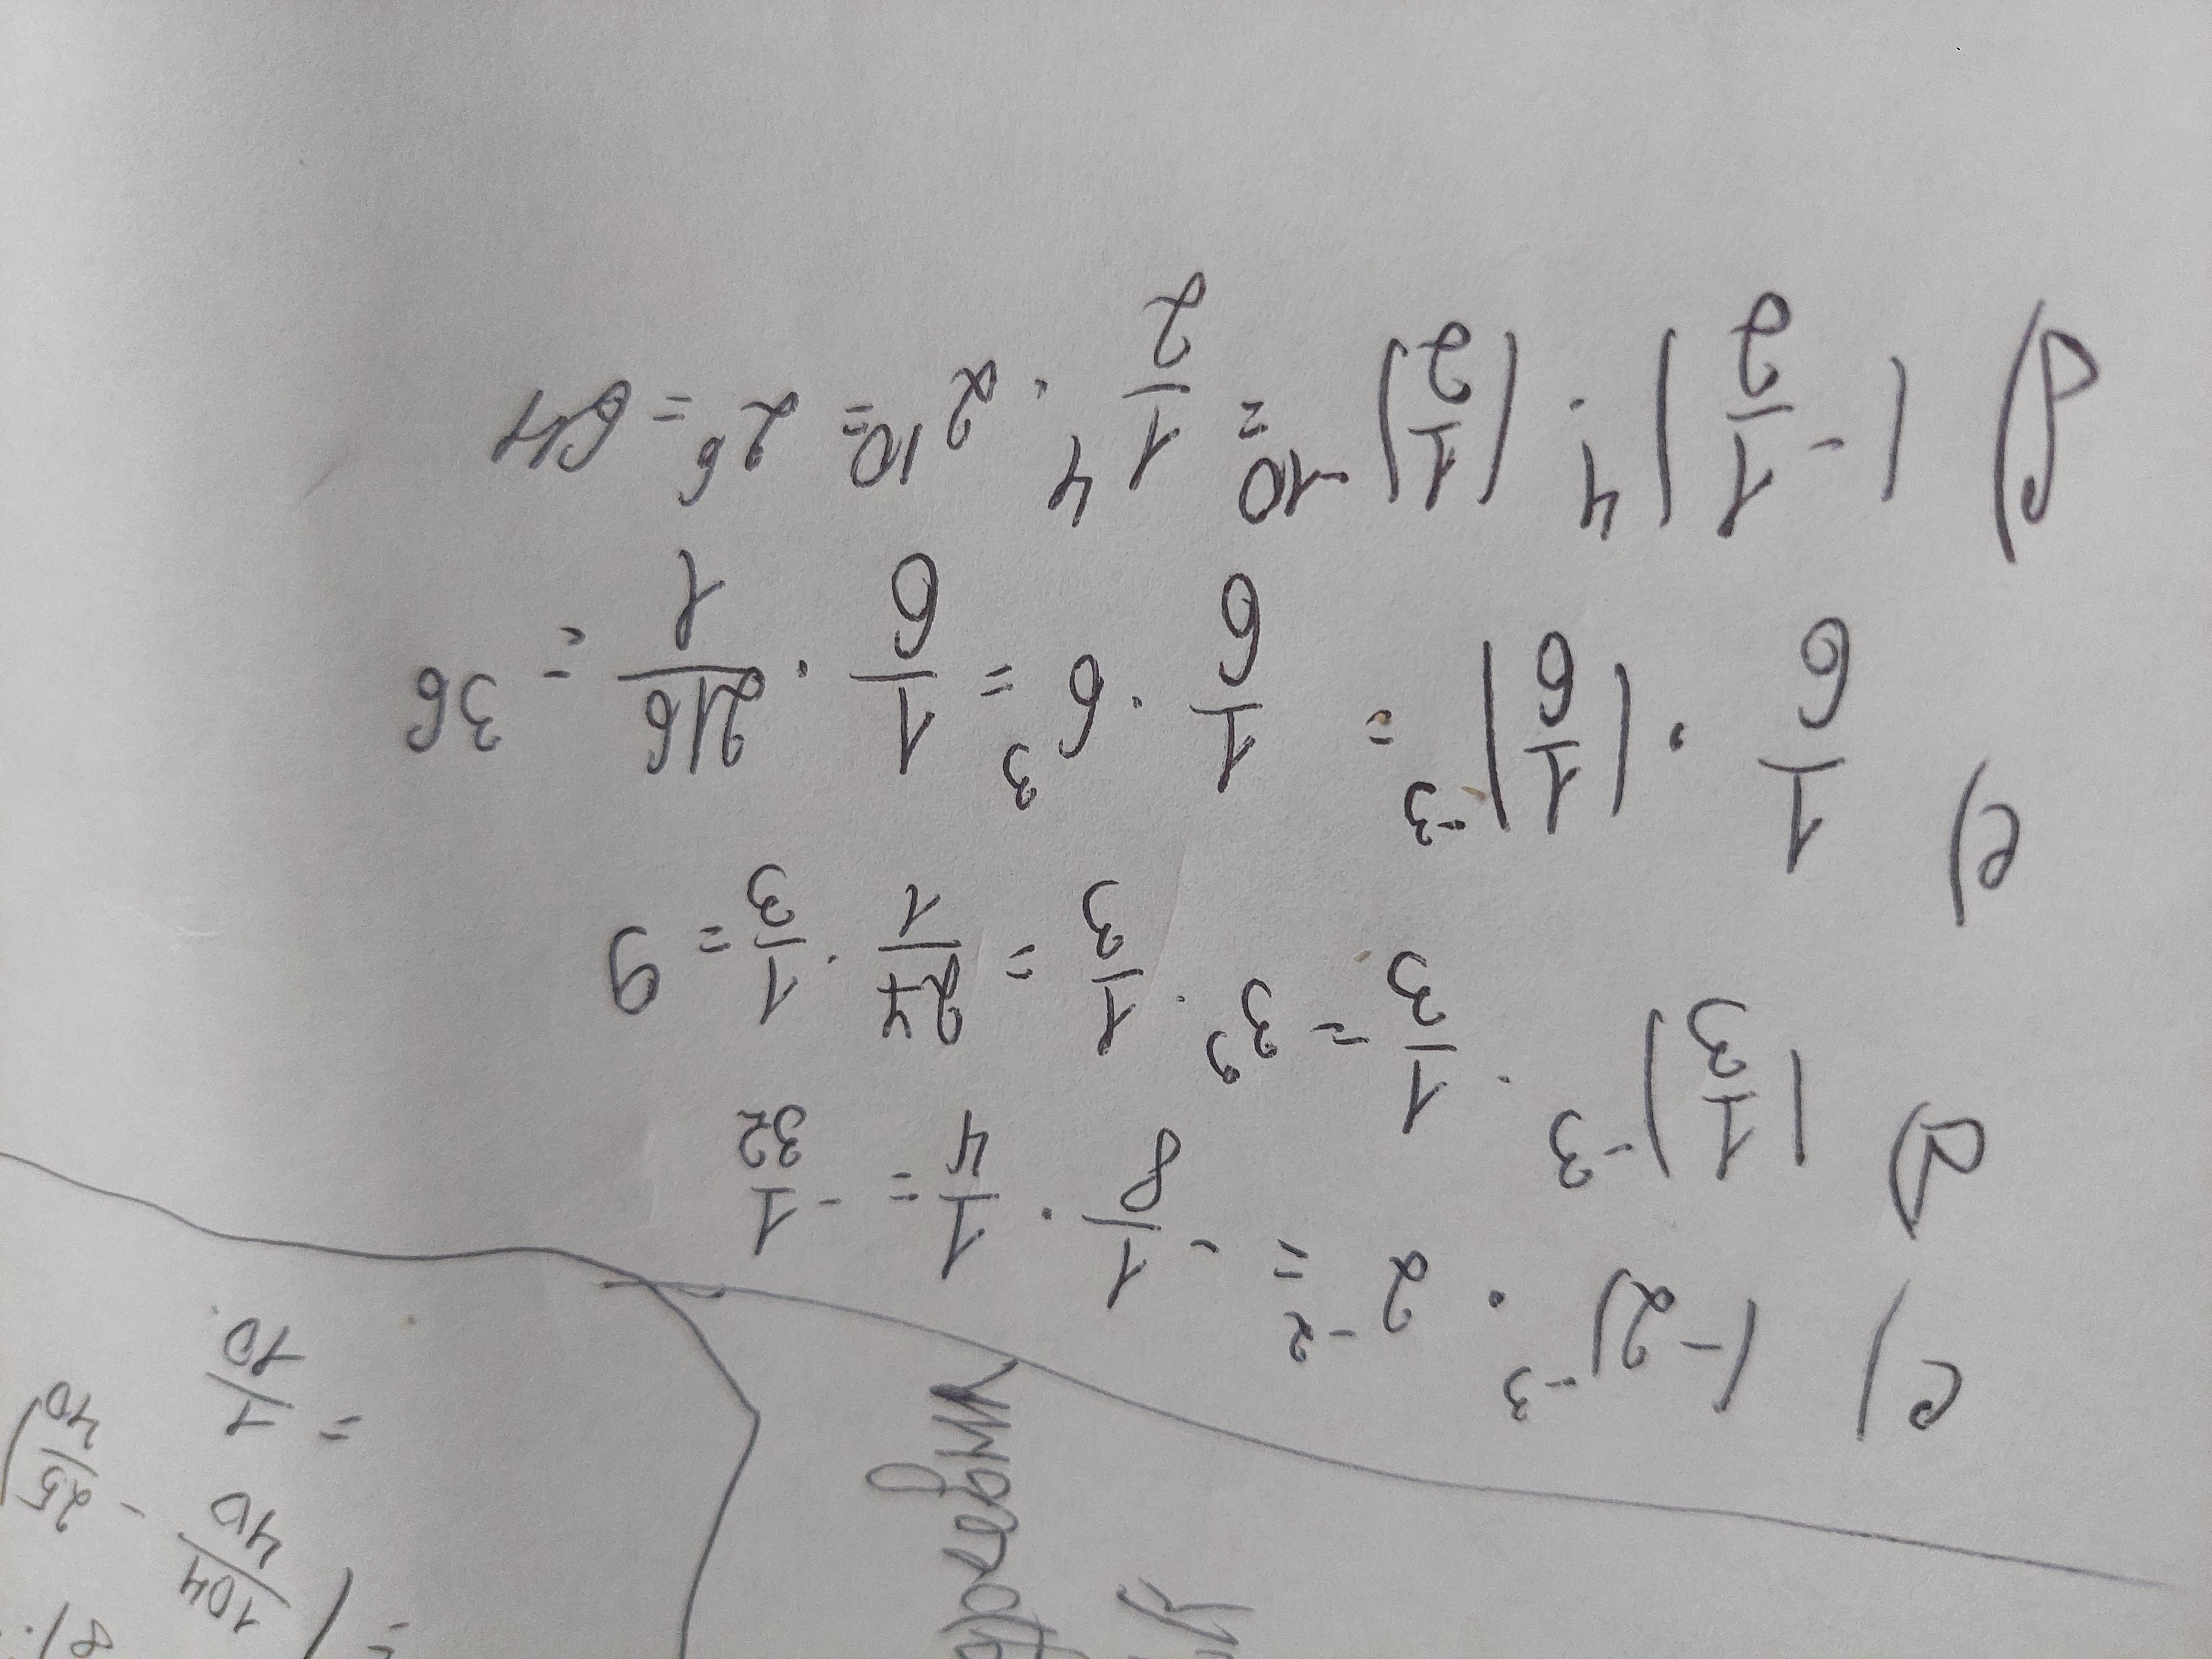 e) (-2)⁻³ · 2⁻² = - 1/8 · 1/4 = - 1/32
a) (1/3)⁻³ · 1/3 = 3³ · 1/3 = 27/1 · 1/3 = 9
c) 1/6 · (1/6)⁻³ = 1/6 · 6³ = 1/6 · 216/1 = 36
(-1/2)⁴ · (1/2)⁻¹⁰ = 1/2⁴ · 2¹⁰ = 2⁶ = 64
= (104/40 - 25/40)
= 1/10 ·